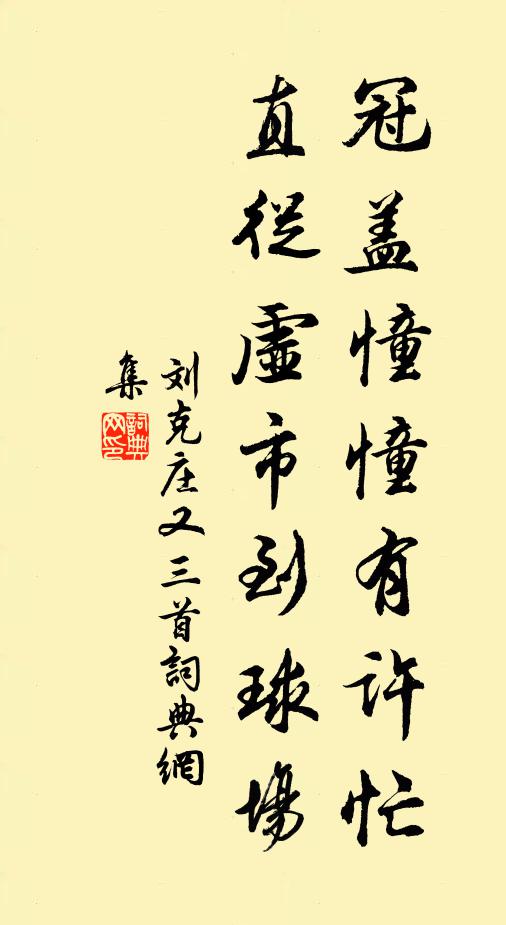 冠盖憧憧有许忙
直從虛市到球場
刘克庄又三首詞典網
集
詞典
网印